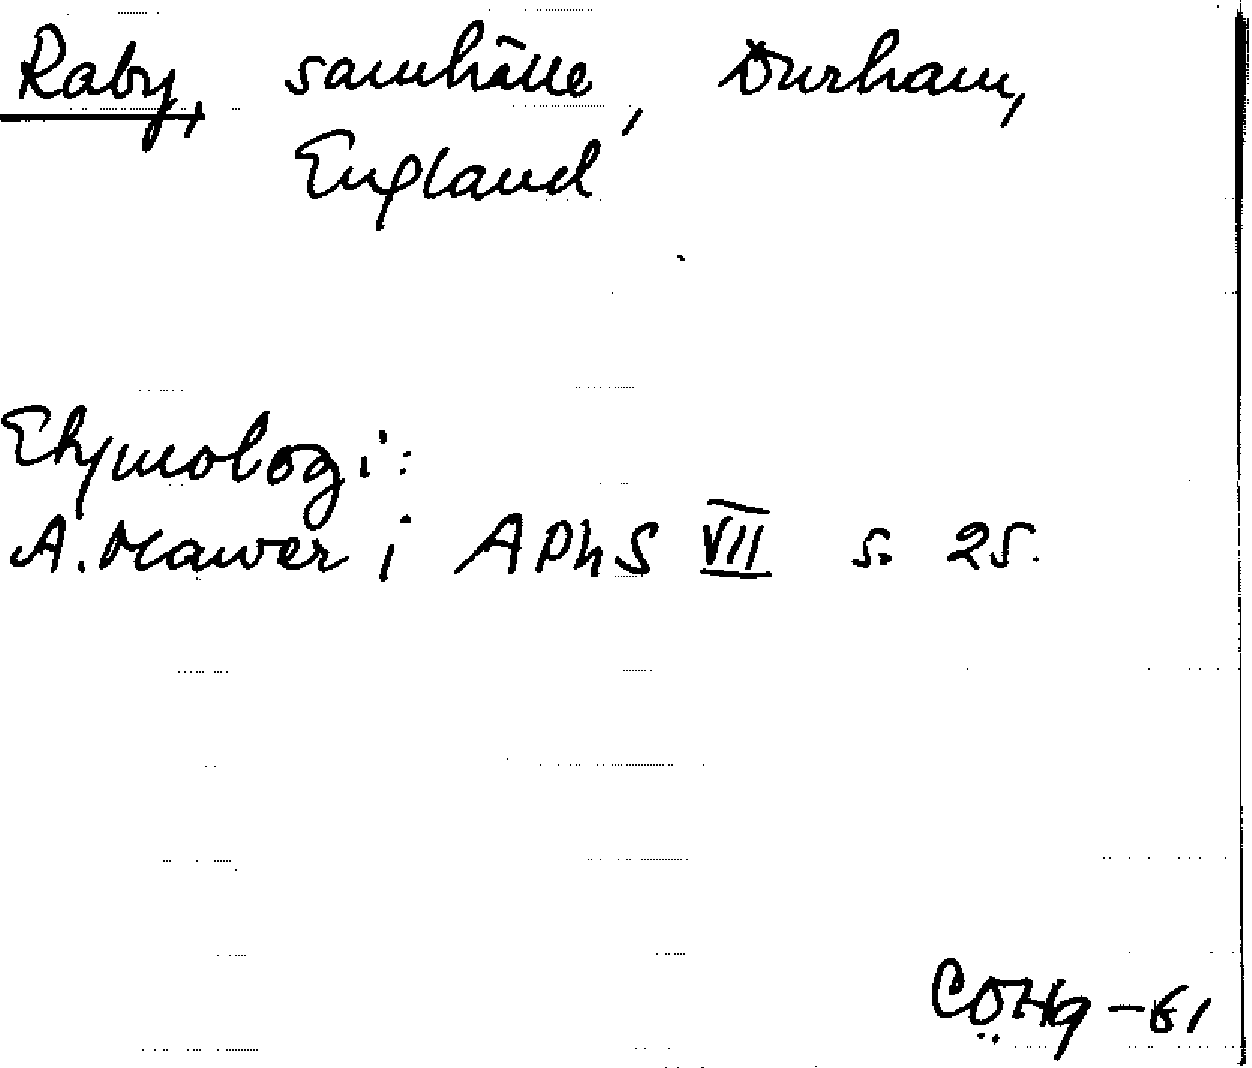 Raby, samhälle, Durham,
England
Etymologi:
A. Mawer i APhS VII s. 25.